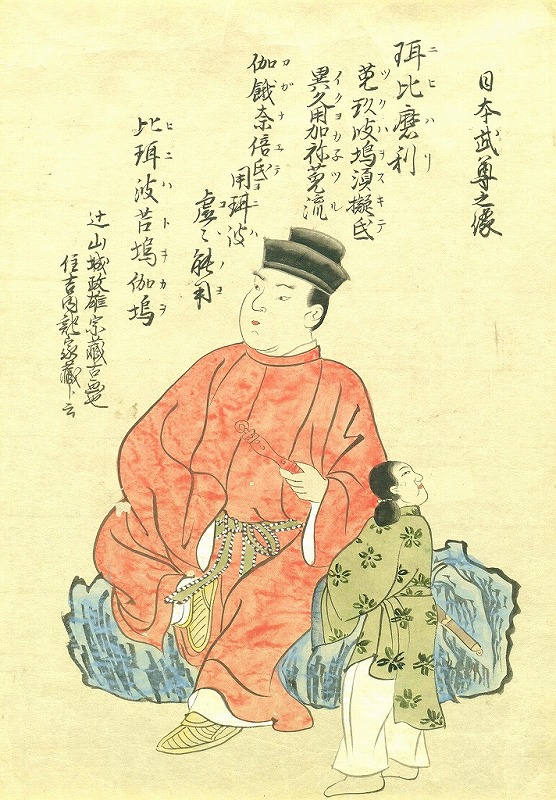 日本武尊之像
ニヒハリ
珥比麼利
ツクハヲスキテ
菟玖波塢須擬氐
イクヨカ子ツル
異久用加祢菟流
カガナエテ
伽餓奈倍氐
ヨニハ
用珥波
コヽノヨ
虚々能用
ヒニハトヲカヲ
比珥波苔塢伽塢
辻山城政雄宗蔵古画也
住吉内記家蔵ト云